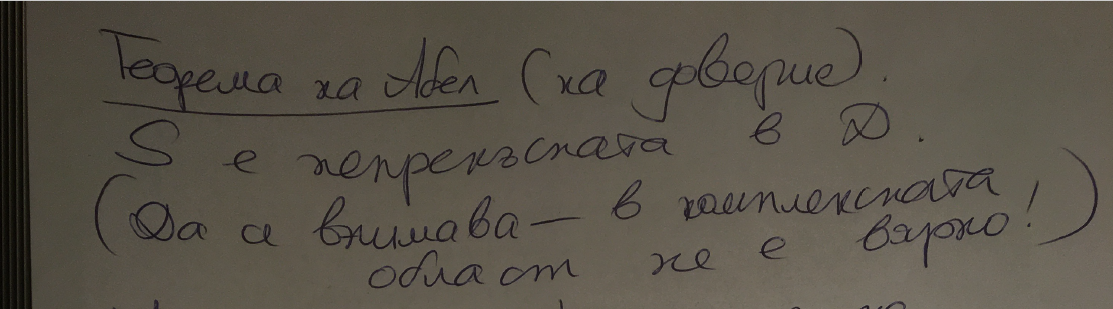 Теорема на Абел (на доверие).
S е непрекъсната в D.
(Да се внимава – в комплексната
област не е вярно!)